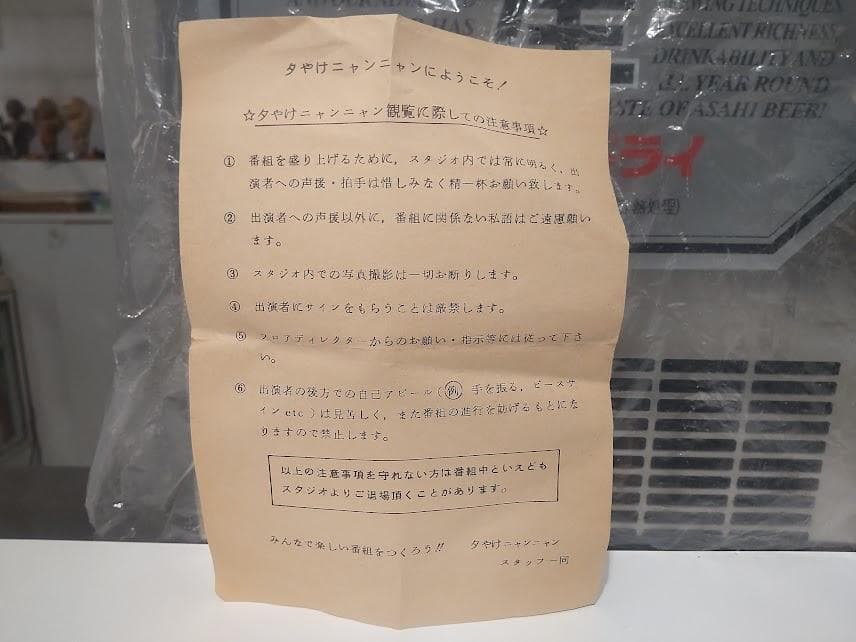 夕やけニャンニャンにようこそ！
☆夕やけニャンニャン観覧に際しての注意事項☆
① 番組を盛り上げるために，スタジオ内では常に明るく，出
演者への声援・拍手は惜しみなく精一杯お願い致します。
② 出演者への声援以外に，番組に関係ない私語はご遠慮願い
ます。
③ スタジオ内での写真撮影は一切お断りします。
④ 出演者にサインをもらうことは厳禁します。
⑤ フロアディレクターからのお願い・指示等には従って下さ
い。
⑥ 出演者の後方での自己アピール（例 手を振る，ピースサ
イン etc ）は見苦しく，また番組の進行を妨げるもとにな
りますので禁止します。
以上の注意事項を守れない方は番組中といえども
スタジオよりご退場頂くことがあります。
みんなで楽しい番組をつくろう!! 夕やけニャンニャン
スタッフ一同
BREWING TECHNIQUES
EXCELLENT RICHNESS,
DRINKABILITY AND
YEAR ROUND
TASTE OF ASAHI BEER!
HAS
ドライ
処理)